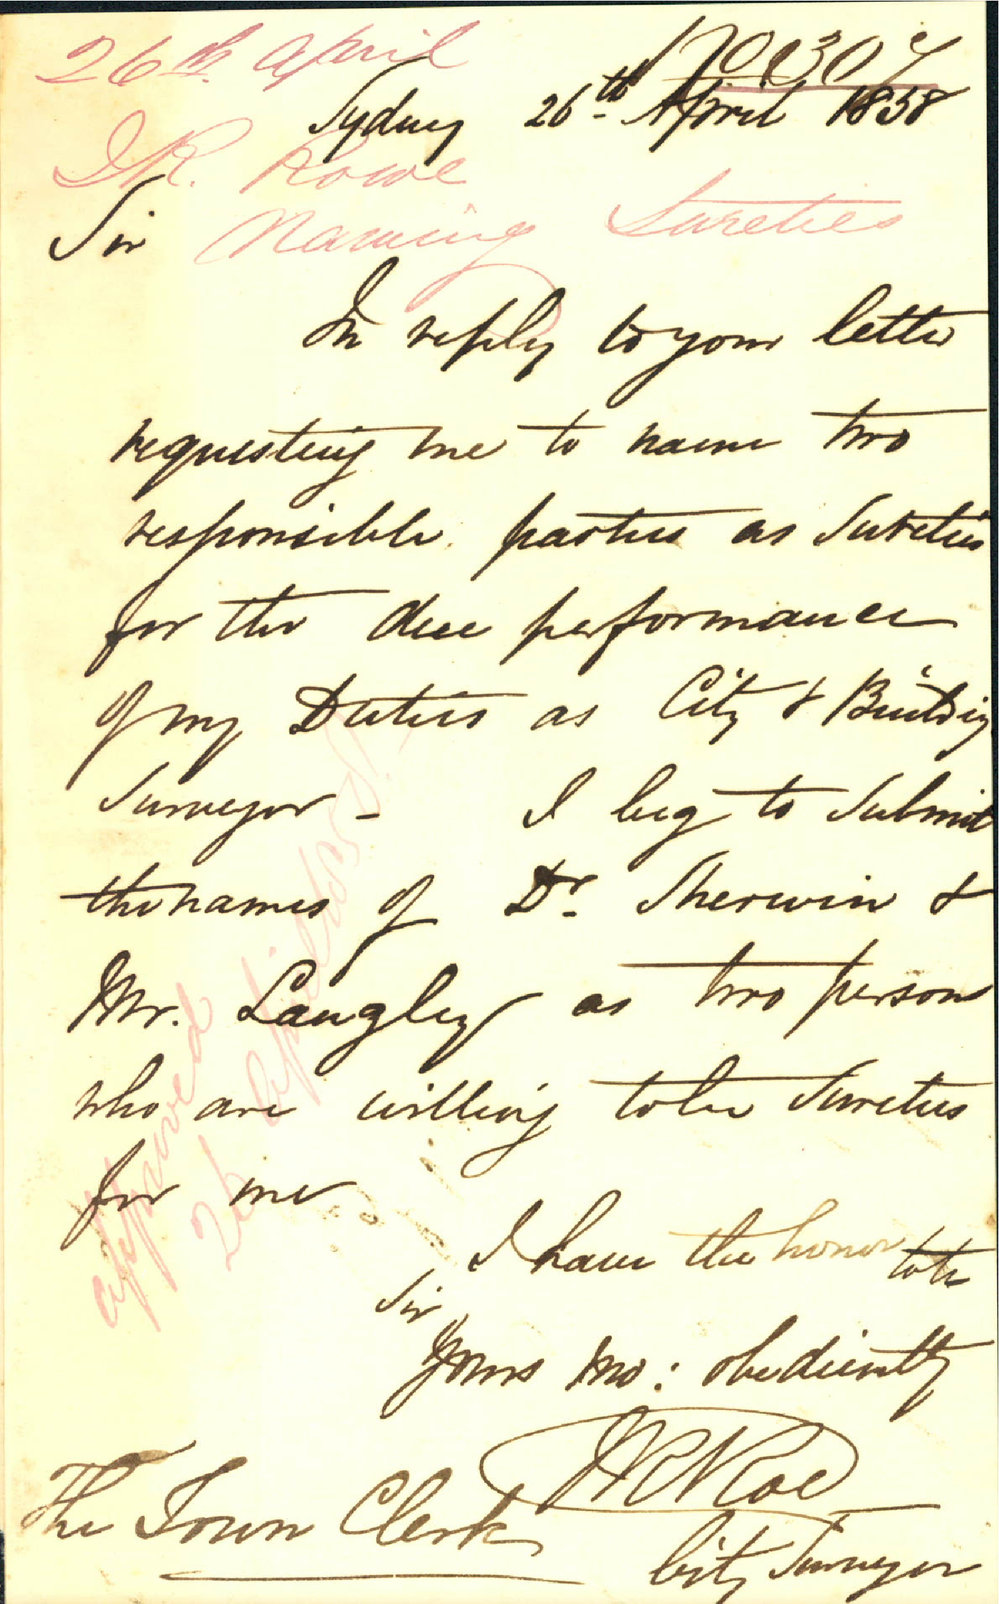 26th. April
Sydney 26th. April 1858
J R. Rowe
Sir
Naming Sureties
In reply to your letter
requesting me to name two
responsible parties as Sureties
for the due performance
of my Duties as City & Building
Surveyor - I beg to Submit
the names of Dr. Sherwin &
Mr. Langley as two persons
who are willing to be Sureties
for me
Approved
26 April
I have the honor to be
Sir
Yours Mo: obediently
The Town Clerk
City Surveyor